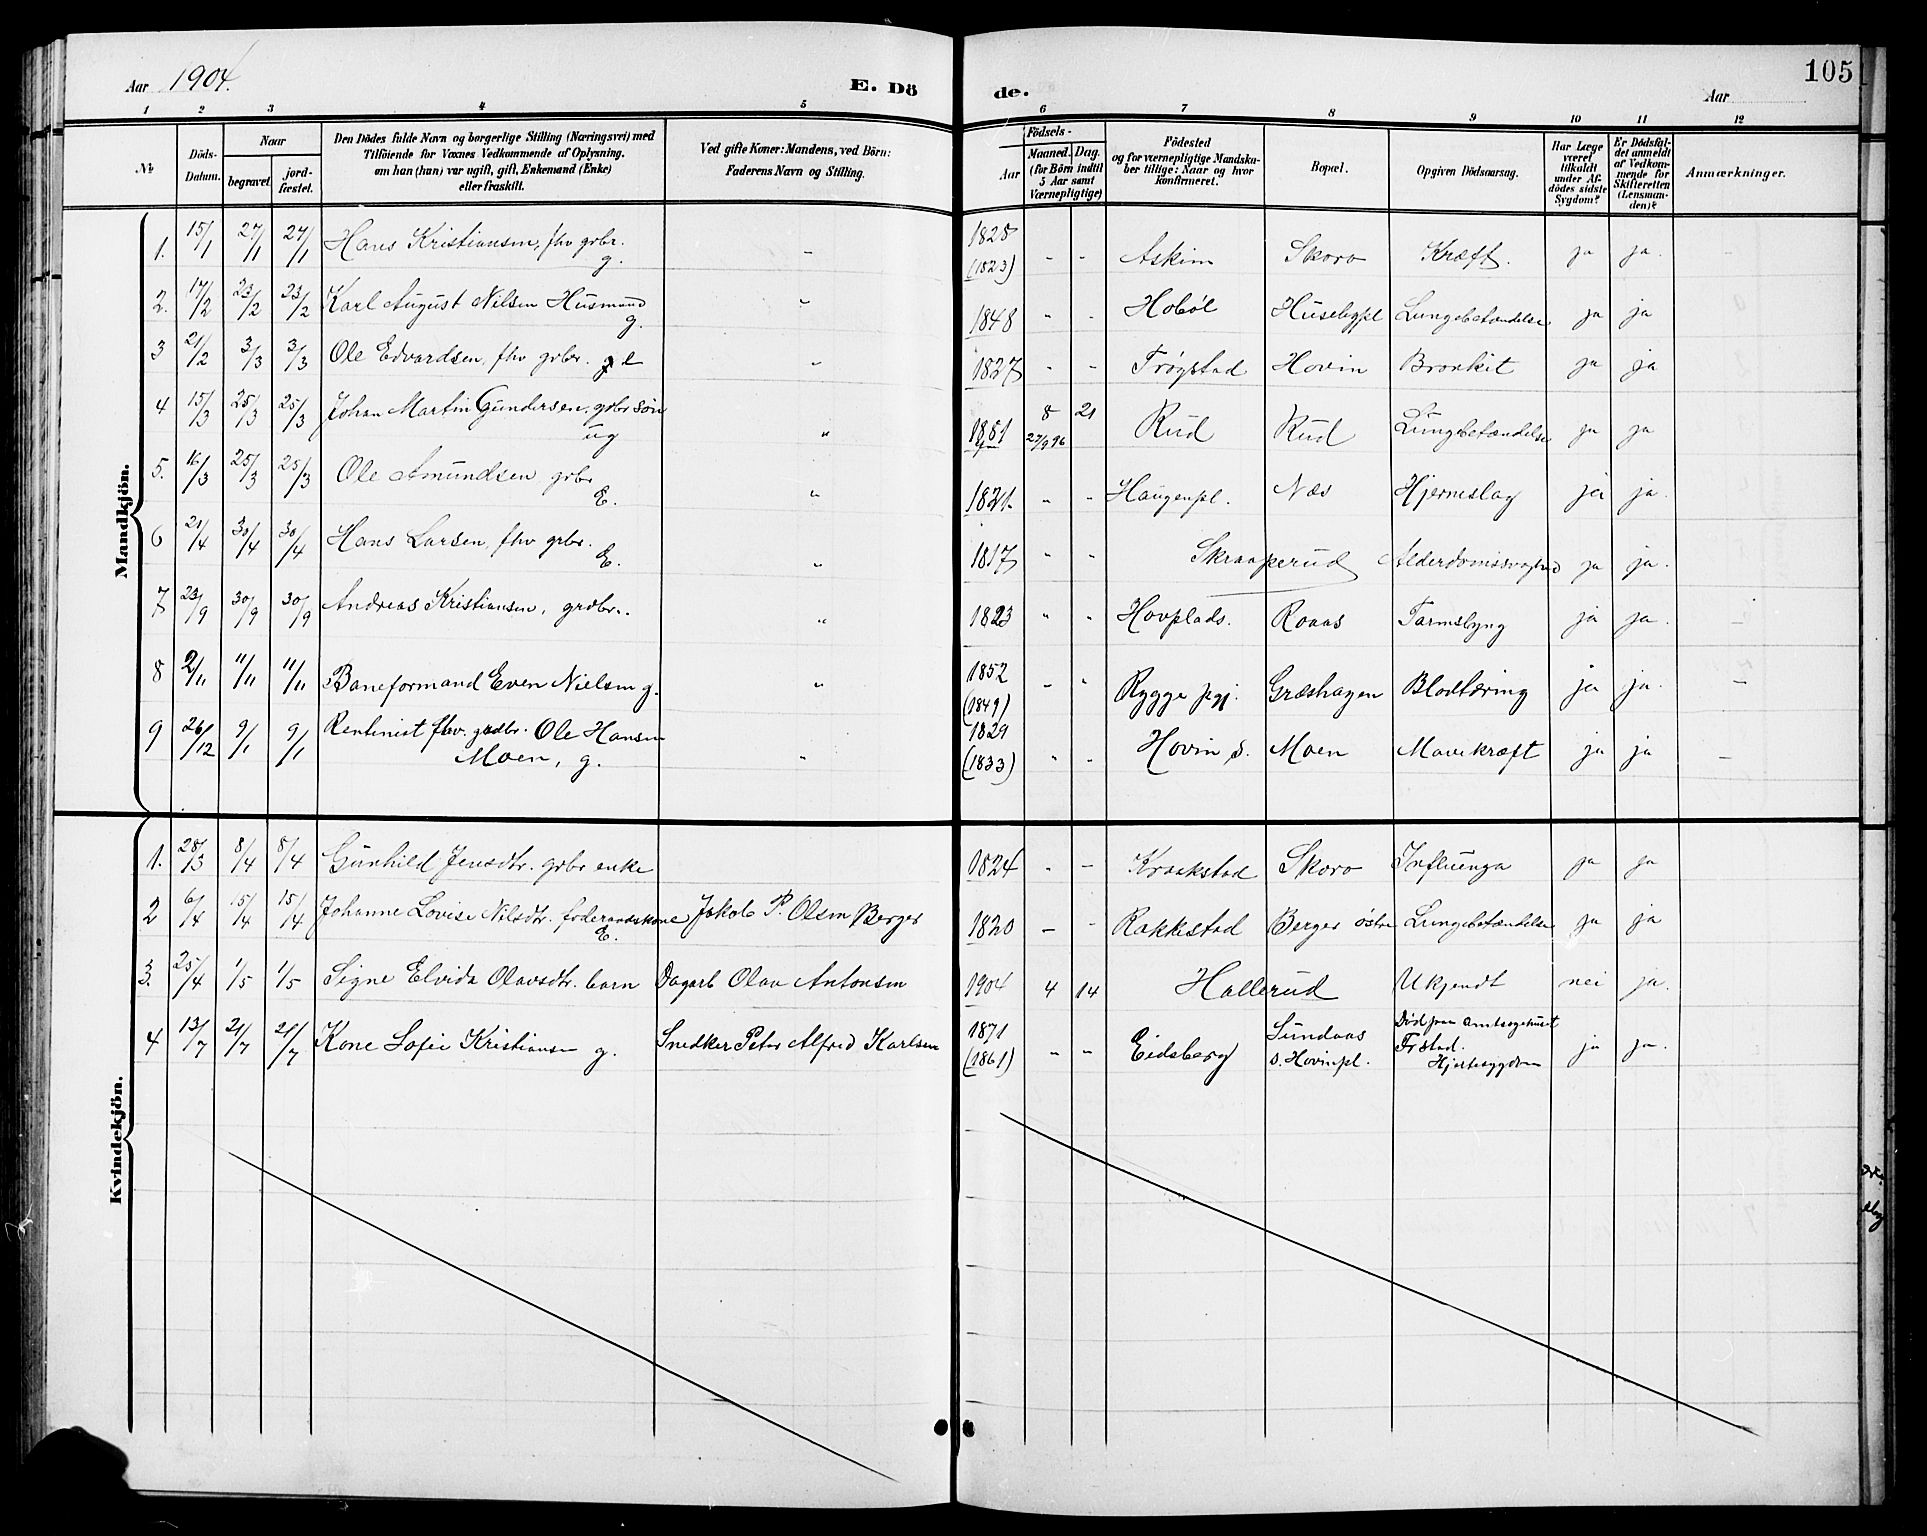 105
Aar 1904. E. Dö de. Aar
1 2 3 4 5 6 7 8 9 10 11 12
No
Döds-Datum.
Naar
begravet.
jordfæstet.
Den Dödes fulde Navn og borgerlige Stilling (Næringsvei) med
Tilföiende for Voxnes Vedkommende af Oplysning.
om han (hun) var ugift, gift, Enkemand (Enke)
eller fraskilt.
Ved gifte Koner: Mandens, ved Börn:
Faderens Navn og Stilling.
Födsels-
Aar
Maaned. Dag.
(for Börn indtil
5 Aar samt
Værnepligtige)
Födested
og for værnepligtige Mandska-
ber tillige: Naar og hvor
konfirmeret.
Bopæl.
Opgiven Dödsaarsag.
Har Læge
været
tilkaldt
under Af-
dödes sidste
Sygdom?
Er Dödsfal-
det anmeldt
af Vedkom-
mende for
Skifteretten
(Lensman-
den)?
Anmærkninger.
Mandkjön.
1. 15/1 27/1 27/1 Hans Kristiansen, fhv grbr. g. " 1825 (1823) " " Askim Skoro Kræft. ja ja.
2. 17/2 23/2 23/2 Karl August Nilsen Husmand g. " 1848 " " Hobøl Husebypl Lungebetændelse ja ja
3 21/2 3/3 3/3 Ole Edvardsen, fhv grbr. e " 1827 " " Trøgstad Hovin Bronkit ja ja
4 15/3 25/3 25/3 Johan Martin Gundersen, grbr søn ug " 1881 8 21 27/9 96 Rud Rud Lungebetændelse ja ja
5. 16/3 25/3 25/3 Ole Amundsen grbr E. " 1821. " " Haugenpl. Næs Hjerneslag ja ja.
6 21/4 30/4 30/4 Hans Larsen, fhv grbr. E. " 1817 " " Skraaperud Alderdomssvaghed ja ja.
7 23/9 30/9 30/9 Andreas Kristiansen, grdbr.. " 1823 " " Hovplads. Roaas Tarmslyng ja ja. –
8 2/11 11/11 11/11 Baneformand Even Nielsen g. " 1852 (1849) " " Rygge pgj. Græshagen Blodtæring ja ja. –
9 26/12 9/1 9/1 Rentinist fhv. grdbr. Ole Hansen
Moen, g. " 1829 (1833) " " Hovin s. Moen Mavekræft ja ja –
Kvindekjön.
1. 28/3 8/4 8/4 Gunhild Jensdtr. grbr enke 1824 " – Kraakstad Skoro Influenza ja ja
2 6/4 15/4 15/4 Johanne Lovise Nilsdtr. foderaadskone E. Jakob P. Olsen Berger 1820 – " Rakkestad Berger østre Lungebetændelse ja ja
3. 25/4 1/5 1/5 Signe Elvida Olavsdtr. barn Dagarb Olav Antonsen 1904 4 14 Hallerud Ukjendt nei ja.
4 13/7 21/7 21/7 Kone Sofie Kristiansen g. Snedker Peter Alfred Karlsen 1871 (1861) " " Eidsberg Sundaas
s. Hovinpl. Død paa Amtssygehuset
Frstad.
Hjertesygdom ja ja.